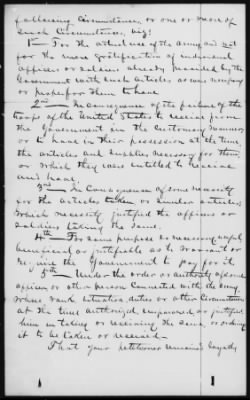 following circumstances, or one or more of
such circumstances, viz:
1st For the actual use of the army and not
for the mere gratification of individual
officers or soldiers already provided by the
Government with such articles as were necessary
or proper for them to have
2nd In consequence of the failure of the
troops of the United States to receive from
the Government in the customary manner
or to have in their possession at the time,
the articles and supplies necessary for them,
or which they were entitled to receive
and have.
3rd In Consequence of some necessity
for the articles taken or similar articles
which necessity justified the officers or
soldiers taking the same.
4th For some purpose so necessary useful
beneficial or justifiable as to warrant or
require the Government to pay for it.
5th Under the order or authority of some
officer or other person Connected with the army
whose rank, situation, duties or other Circumstances
at the time authorized, empowered or justified
him in taking or receiving the same, or ordering
it to be taken or received—
That your petitioner remained loyally